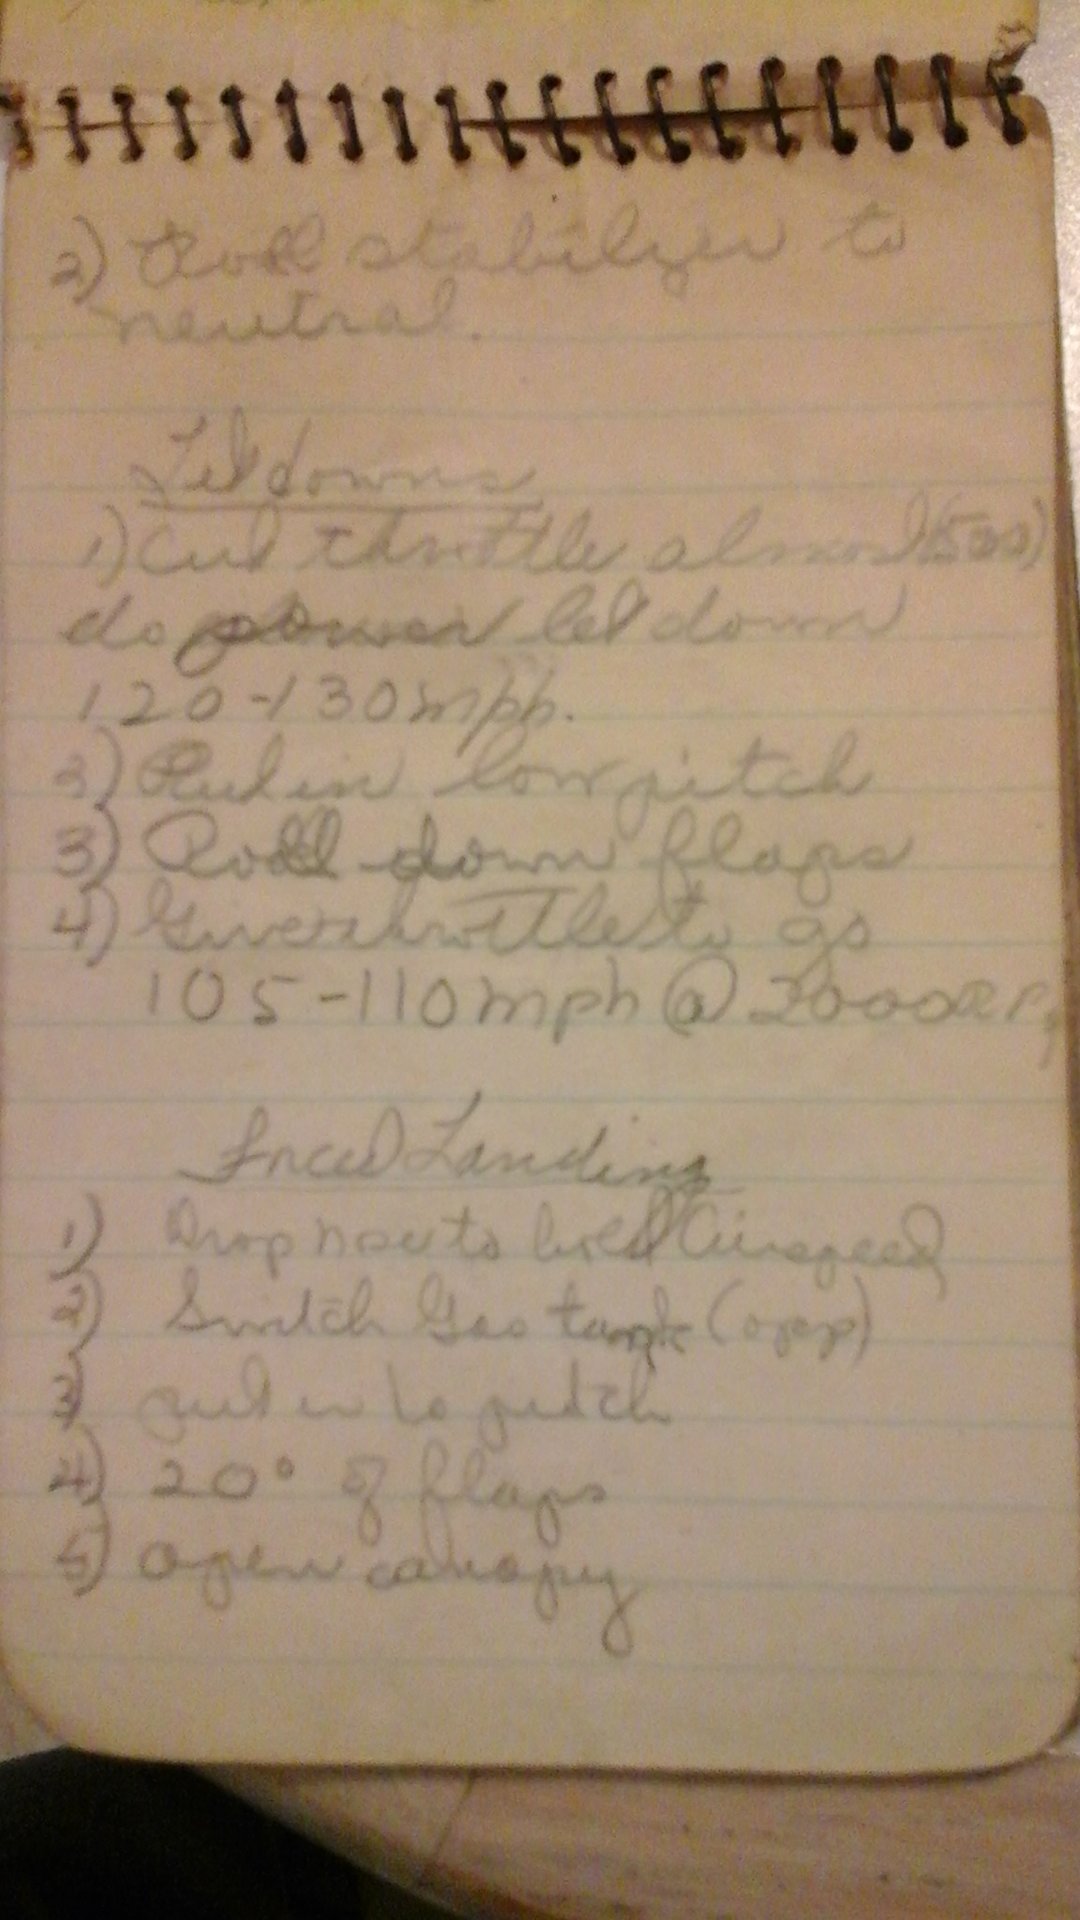 2) Roll stabilizer to
neutral.
Let downs
1) Cut throttle almost (500)
do power let down
120-130 mph.
2) Put in low pitch
3) Roll down flaps
4) Give throttle to go
105-110 mph @ 2000 RP
Forced Landing
1) Drop nose to hold Airspeed
2) Switch Gas tank (opp)
3) put in lo pitch
4) 20° of flaps
5) open canopy